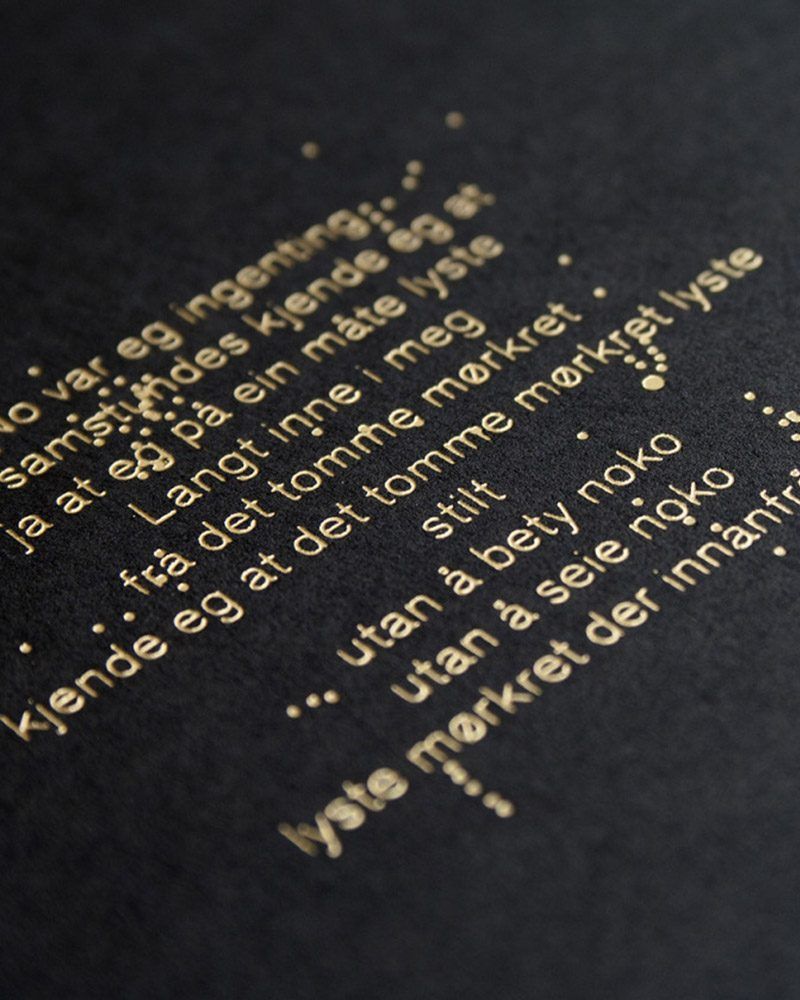 No var eg ingenting
samstundes kjende eg at
ja at eg på ein måte lyste
Langt inne i meg
frå det tomme mørkret
kjende eg at det tomme mørkret lyste
stilt
... utan å bety noko
utan å seie noko
lyste mørkret der innanfrå